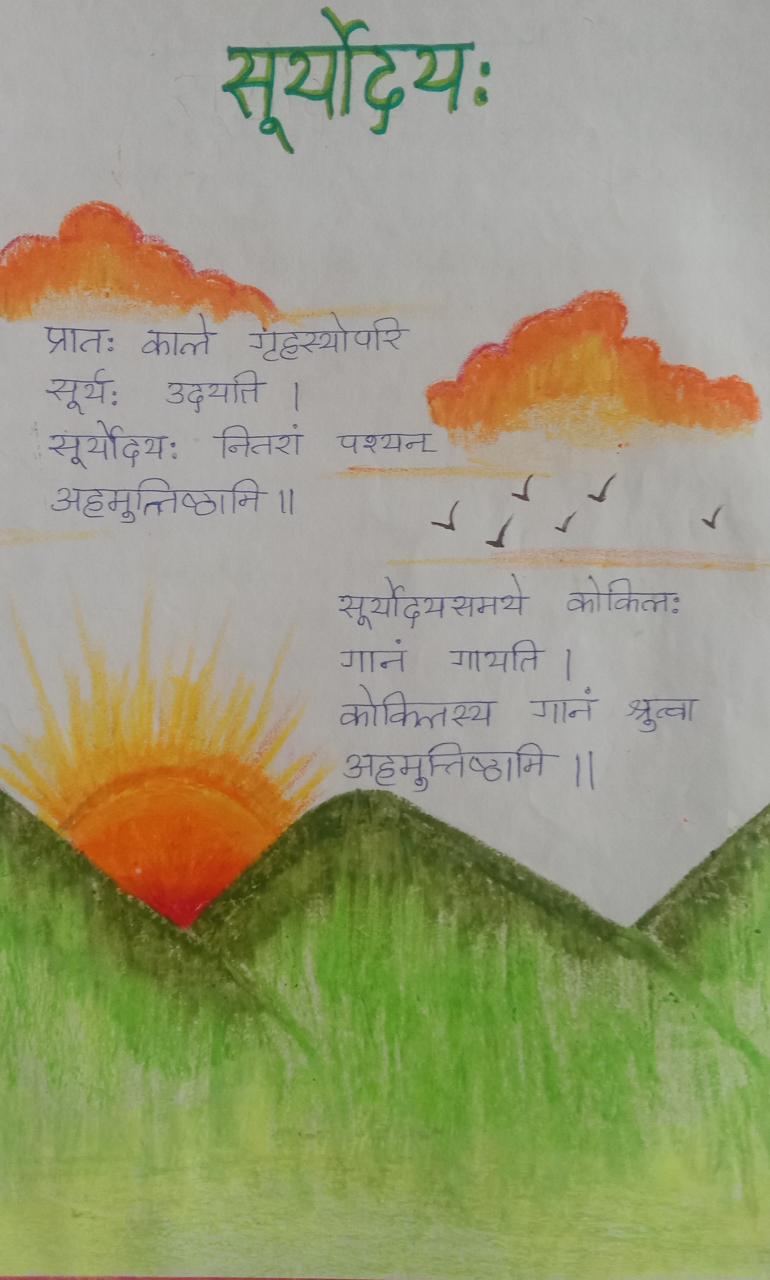 सूर्योदय:
प्रातः काले गृहस्योपरि
सूर्य: उदयति ।
सूर्योदय: नितरां पश्यन्
अहमुत्तिष्ठामि ॥
सूर्योदयसमये कोकिल:
गानं गायति ।
कोकिलस्य गानं श्रुत्वा
अहमुत्तिष्ठामि ॥